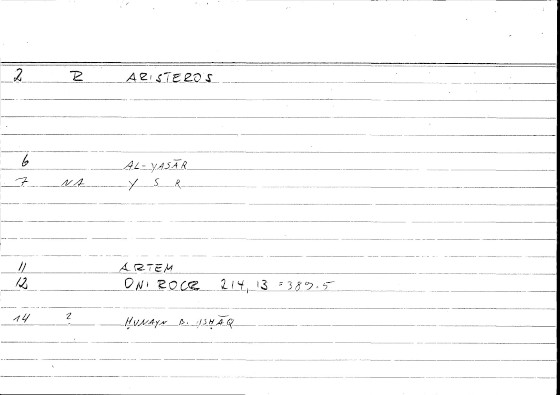 2 R ARISTEROS
6 AL-YASĀR
7 NA Y S R
11 ARTEM
12 ONIROCR 214, 13 = 389.5
14 ? ḤUNAYN B. ISḤĀQ